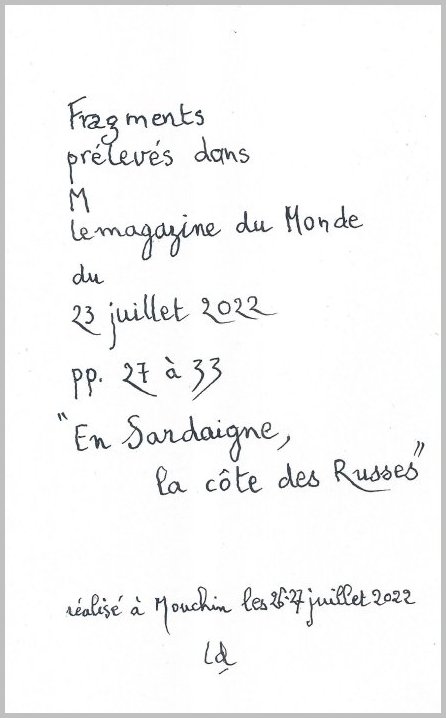 Fragments
prélevés dans
M
le magazine du Monde
du
23 juillet 2022
pp. 27 à 33
"En Sardaigne,
la côte des Russes"
réalisé à Mouchin les 26-27 juillet 2022
Ld